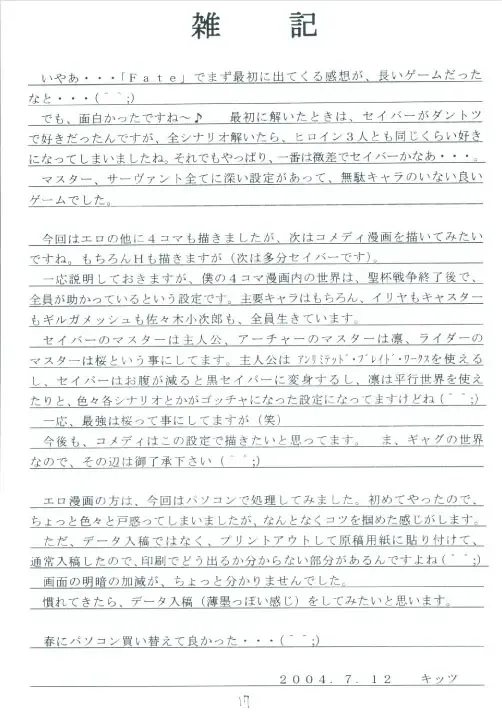 雑記
いやあ・・・「Ｆａｔｅ」でまず最初に出てくる感想が、長いゲームだった
なと・・・(＾＾;)
でも、面白かったですね～♪　最初に解いたときは、セイバーがダントツ
で好きだったんですが、全シナリオ解いたら、ヒロイン３人とも同じくらい好き
になってしまいましたね。それでもやっぱり、一番は微差でセイバーかなあ・・・。
マスター、サーヴァント全てに深い設定があって、無駄キャラのいない良い
ゲームでした。
今回はエロの他に４コマも描きましたが、次はコメディ漫画を描いてみたい
ですね。もちろんＨも描きますが（次は多分セイバーです）。
一応説明しておきますが、僕の４コマ漫画内の世界は、聖杯戦争終了後で、
全員が助かっているという設定です。主要キャラはもちろん、イリヤもキャスター
もギルガメッシュも佐々木小次郎も、全員生きています。
セイバーのマスターは主人公、アーチャーのマスターは凛、ライダーの
マスターは桜という事にしてます。主人公は ｱﾝﾘﾐﾃｯﾄﾞ･ﾌﾞﾚｲﾄﾞ･ﾜｰｸｽを使える
し、セイバーはお腹が減ると黒セイバーに変身するし、凛は平行世界を使え
たりと、色々各シナリオとかがゴッチャになった設定になってますけどね（＾＾;）
一応、最強は桜って事にしてますが（笑）
今後も、コメディはこの設定で描きたいと思ってます。　ま、ギャグの世界
なので、その辺は御了承下さい（＾＾;）
エロ漫画の方は、今回はパソコンで処理してみました。初めてやったので、
ちょっと色々と戸惑ってしまいましたが、なんとなくコツを掴めた感じがします。
ただ、データ入稿ではなく、プリントアウトして原稿用紙に貼り付けて、
通常入稿したので、印刷でどう出るか分からない部分があるんですよね（＾＾;）
画面の明暗の加減が、ちょっと分かりませんでした。
慣れてきたら、データ入稿（薄墨っぽい感じ）をしてみたいと思います。
春にパソコン買い替えて良かった・・・（＾＾;）
２００４．７．１２　キッツ
17